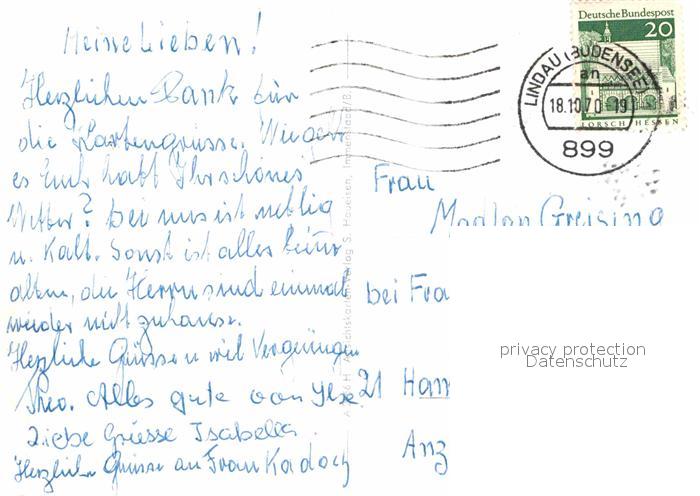 Meine Lieben!
Herzlichen Dank für
die Kartengrüsse. Wie
es Euch habt Ihr schönes
Wetter? bei uns ist neblig
u. Kalt. Sonst ist alles beim
alten, die Herrn sind einmal
wieder nicht zuhause.
Herzliche Grüsse u viel Vergnügen
Theo. Alles gute von Ilse
Liebe Grüsse Isabella
Herzliche Grüsse an Frau Kadach
Deutsche Bundespost
20
LORSCH/HESSEN
LINDAU (BODENSEE)
an
18.10.70-19
899
Frau
bei Fra
21 Han
Anz
Verlag S.
privacy protection
Datenschutz